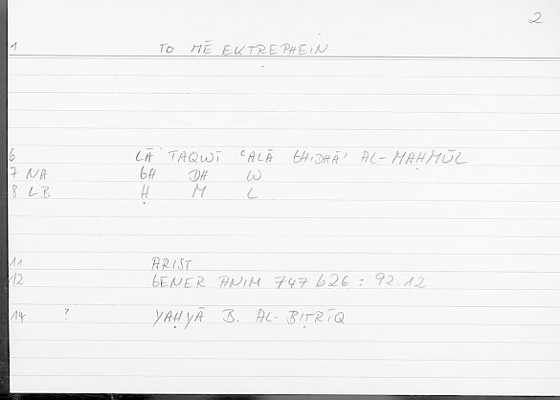 2
1 TO MĒ EKTREPHEIN
6 LĀ TAQWĪ ‘ALĀ GHIDHĀ’ AL-MAḤMŪL
7 NA GH DH W
8 LB Ḥ M L
11 ARIST
12 GENER ANIM 747 b26 : 92.12
14 ? YAḤYĀ B. AL-BIṬRĪQ